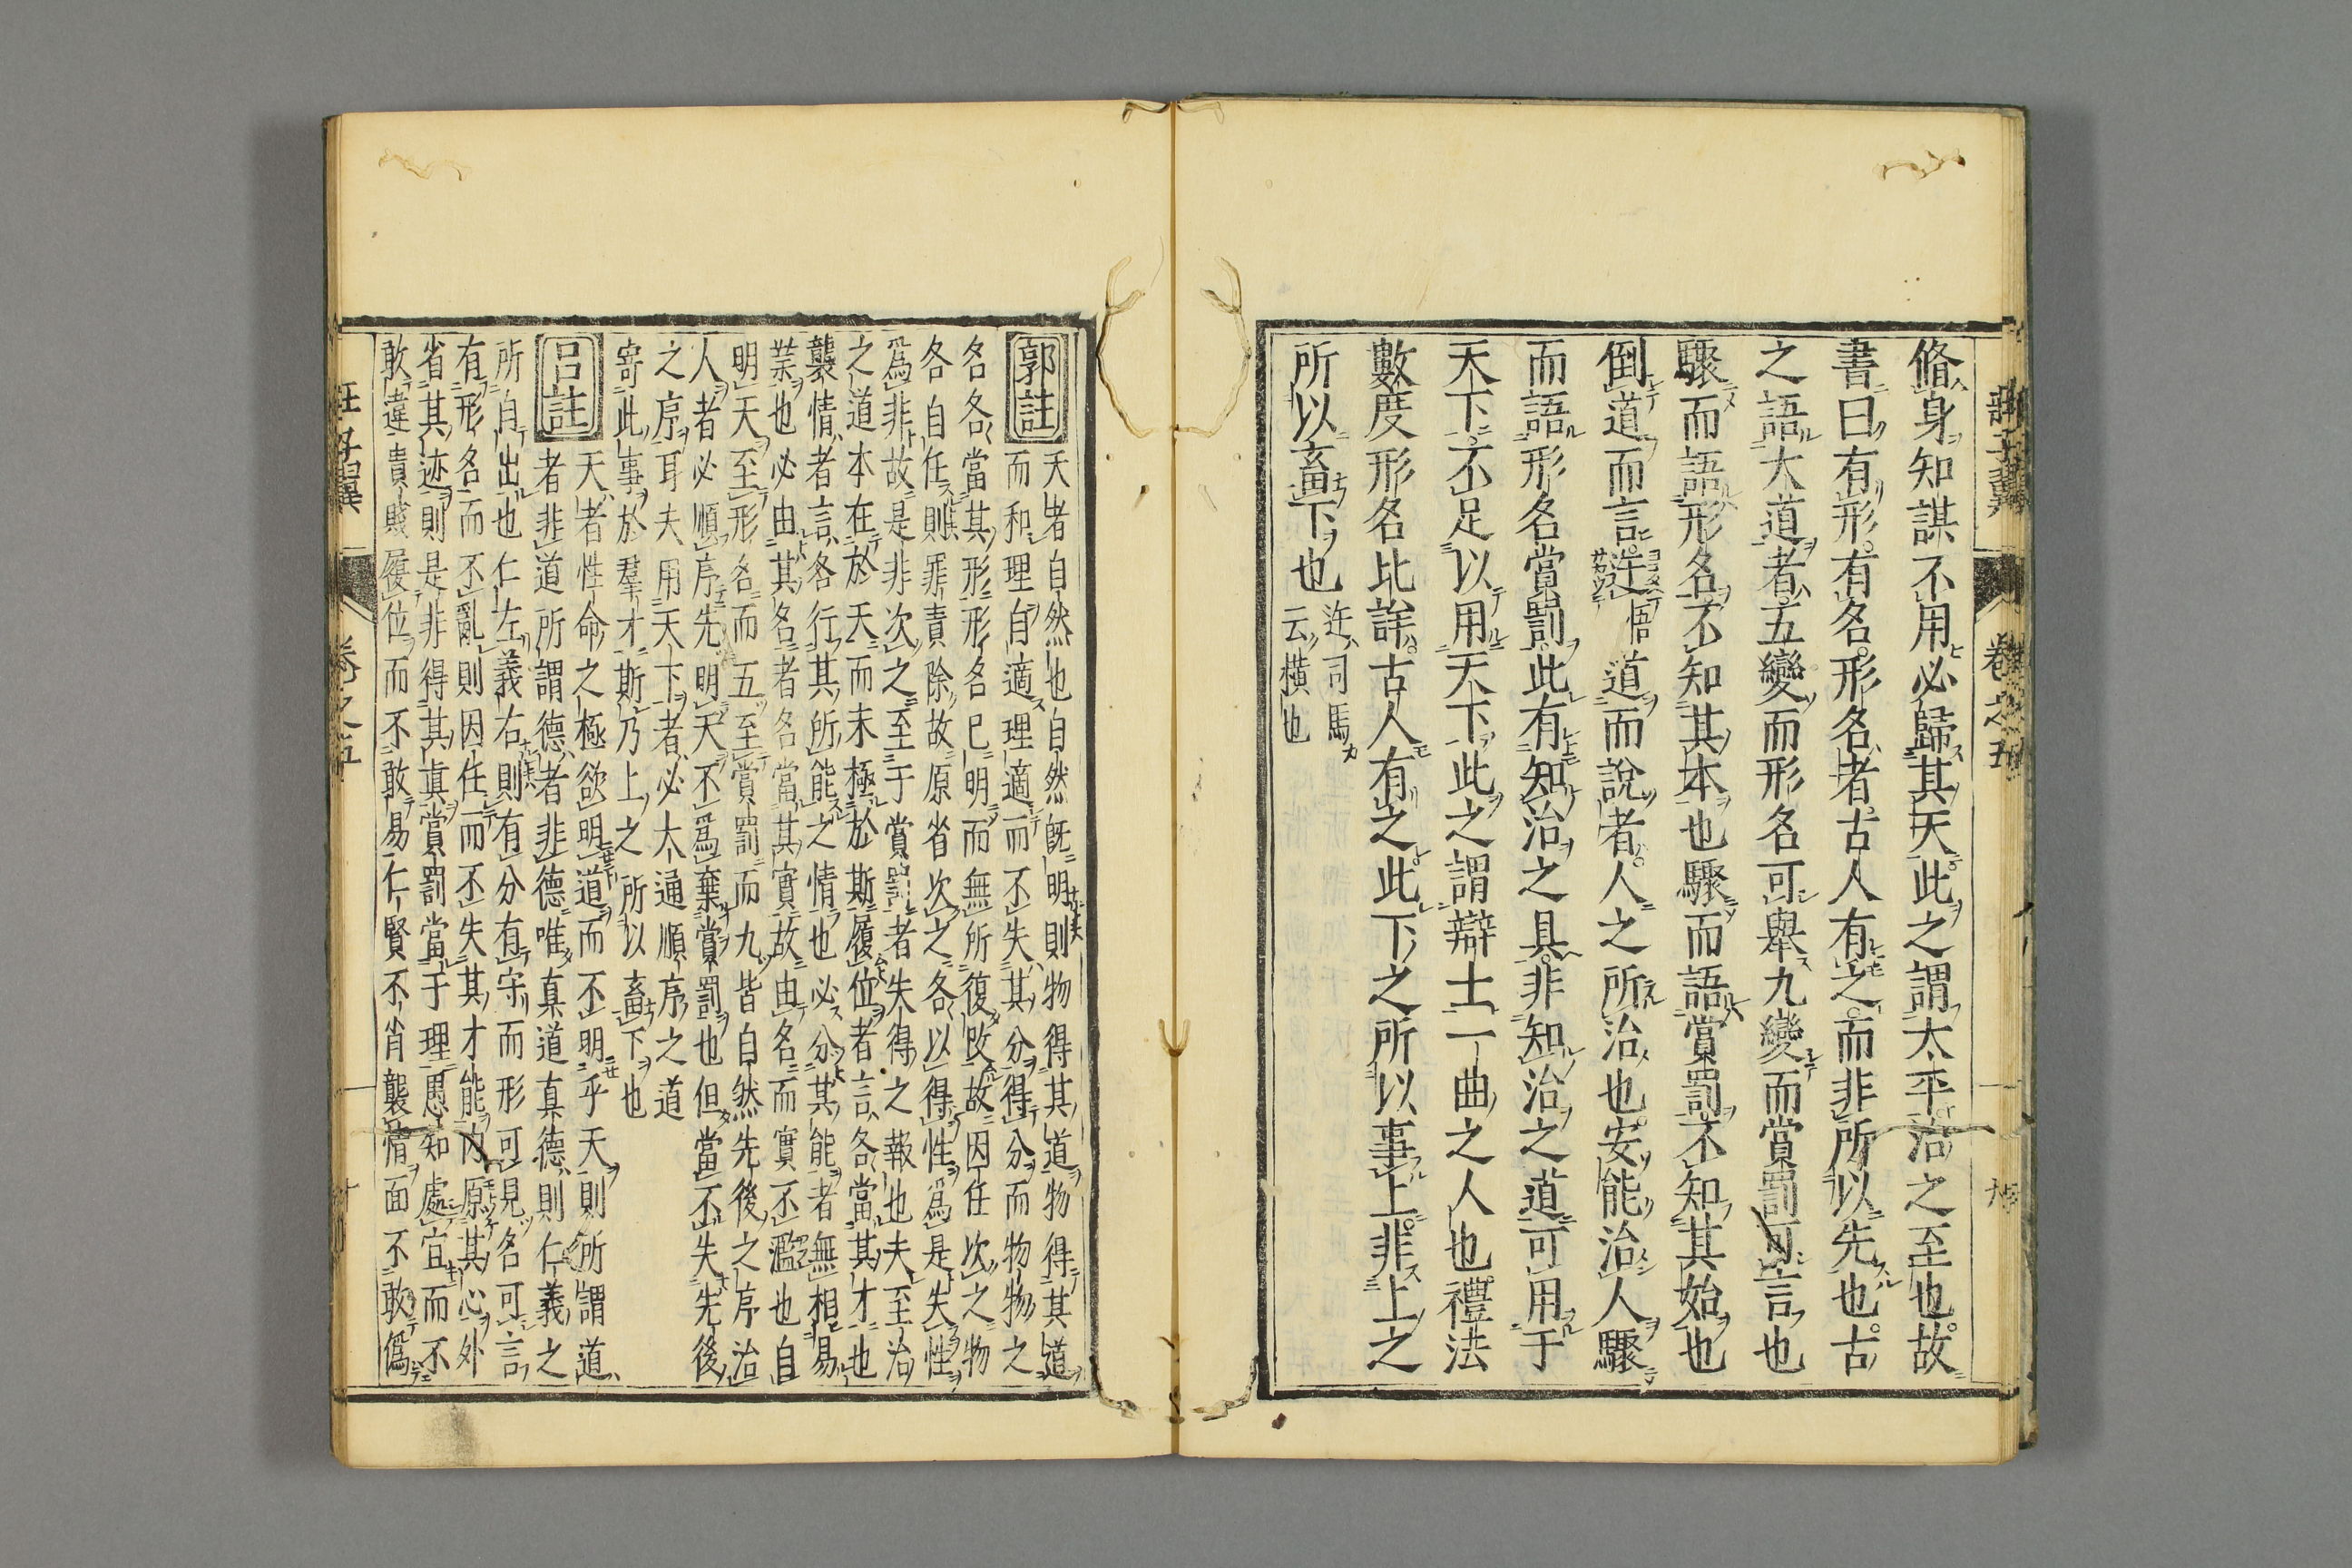 脩身知謀不用必歸其天此之謂大平治之至也故
書曰有形有名形名者古人有之而非所以先也古
之語大道者五變而形名可舉九變而賞罰可言也
驟而語形名不知其本也驟而語賞罰不知其始也
倒道而言迕悟道而說者人之所治也安能治人驟
而語形名賞罰此有知治之具非知治之道可用于
天下不足以用天下此之謂辯士一曲之人也禮法
數度形名比詳古人有之此下之所以事上非上之
所以畜下也迕司馬云橫也
郭註 天者自然也自然旣明則物得其道物得其道
而和理自適理適而不失其分得分而物物之
名各當其形形名已明而無所復改故因任次之物
各自任則罪責除故原省次之各以得性爲是失性
爲非故是非次之至于賞罰者失得之報也夫至治
之道本在於天而未極於斯履位者言各當其才也
襲情者言各行其所能之情也必分其能者無相易
業也必由其名者名當其實故由名而實不濫也自
明天至形名而五至賞罰而九皆自然先後之序治
人者必順序先明天不爲棄賞罰也但當不失先後
之序耳夫用天下者必大通順序之道
寄此事於羣才斯乃上之所以畜下也
呂註 天者性命之極欲明道而不明乎天則所謂道
者非道所謂德者非德唯真道真德則仁義之
所自出也仁左義右則有分有守而形可見名可言
有形名而不亂則因任而不失其才能内原其心外
省其迹則是非得其真賞罰當于理愚知處宜而不
敢違貴賤履位而不敢易仁賢不肖襲情面不敢僞
莊子翼 卷之五